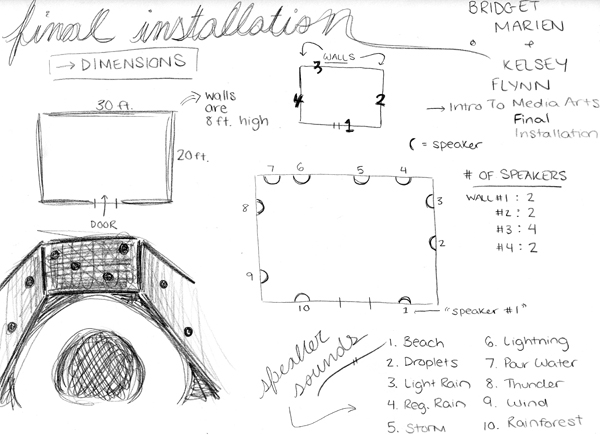 final installation
BRIDGET
MARIEN
+
KELSEY
FLYNN
→ Intro To Media Arts
Final
Installation
→ DIMENSIONS
30 ft.
20 ft.
→ walls
are
8 ft. high
DOOR
WALLS
3
4
2
1
( = speaker
# OF SPEAKERS
WALL #1 : 2
#2 : 2
#3 : 4
#4 : 2
7 6 5 4
8
3
9
2
10
1
"speaker #1"
speaker
sounds
1. Beach
2. Droplets
3. Light Rain
4. Reg. Rain
5. Storm
6. Lightning
7. Pour Water
8. Thunder
9. Wind
10. Rainforest